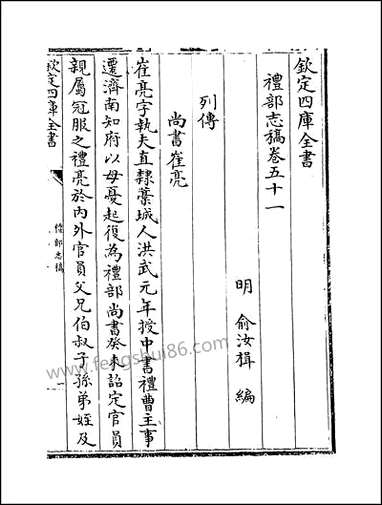 欽定四庫全書
禮部志稿卷五十一
明 俞汝楫 編
列傳
尚書崔亮
崔亮字執夫直隸藁城人洪武元年授中書禮曹主事
遷濟南知府以母憂起復為禮部尚書癸未詔定官員
親屬冠服之禮亮於內外官員父兄伯叔子孫弟姪及
欽定四庫全書
禮部志稿
一
www.fengshui86.com